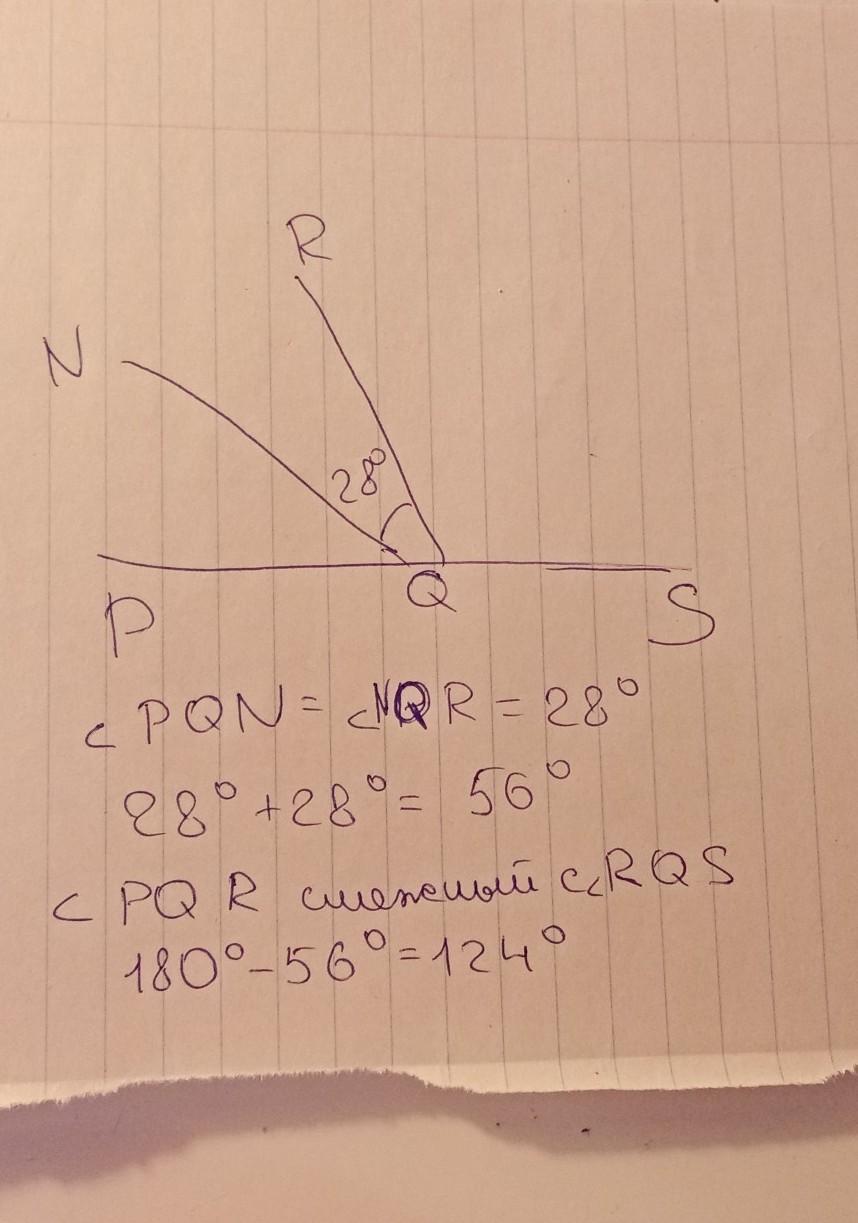 R
N
28°
P
Q
S
∠PQN = ∠NQR = 28°
28° + 28° = 56°
∠PQR смежный с ∠RQS
180° - 56° = 124°